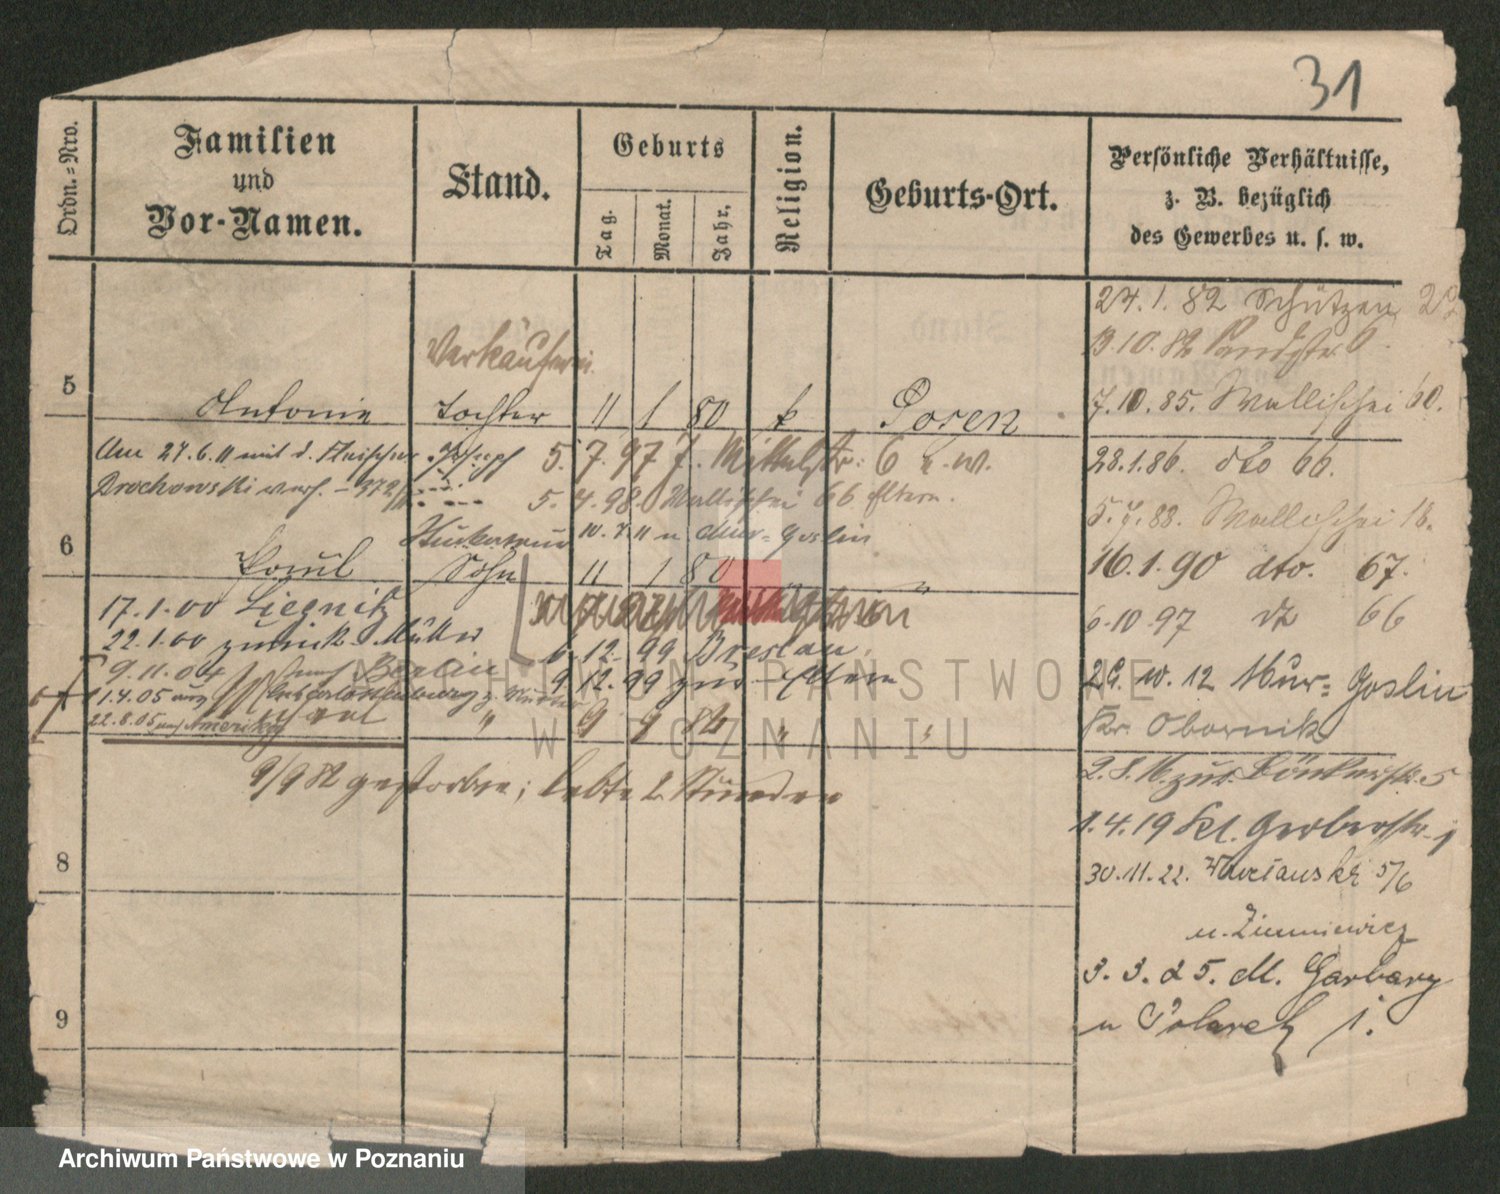 31
Ordn.=Nro.
Familien
und
Vor-Namen.
Stand.
Geburts
Tag.
Monat.
Jahr,
Religion.
Geburts-Ort.
Persönliche Verhältnisse,
z. B. bezüglich
des Gewerbes u. s. w.
24.1.82 Schützen
13.10.82
7.10.85. Wallischei 60.
28.1.86. dto 66.
5.7.88. Wallischei 18.
16.1.90 dto. 67.
6.10.97 66
29. 10. 12 Mur= Goslin
Kr. Obornik
2.8.16. zur 5
1.4.19 Kl. Gerberstr. 1
30.11.22. 5/6
u. Zimniewicz
3. 3. 25. M. Garbary
u 1.
Verkäuferin
5 Antonie Tochter 11 1 80 k Posen
Am 27.6.11 mit d. Fleischer Josef 5. 7. 97 Mittelstr. 6
Drochowski verh. 5. 4. 98. Wallischei 66 Eltern.
10.7.11 n. Mur=Goslin
6 Paul Sohn 11 1 80 "
17.1.00 Liegnitz
22.1.00 zurück Mutter 6. 12. 99 Breslau.
9.11.04 Berlin 9 12. 99 zur Eltern
1.4.05 aus Charlottenburg z. Mutter
22.8.05 nach Amerika " 9 9 82 " "
9/9 82 gestorben; lebte 2 Stunden
8
9
ARCHIWUM PAŃSTWOWE
W POZNANIU
Archiwum Państwowe w Poznaniu